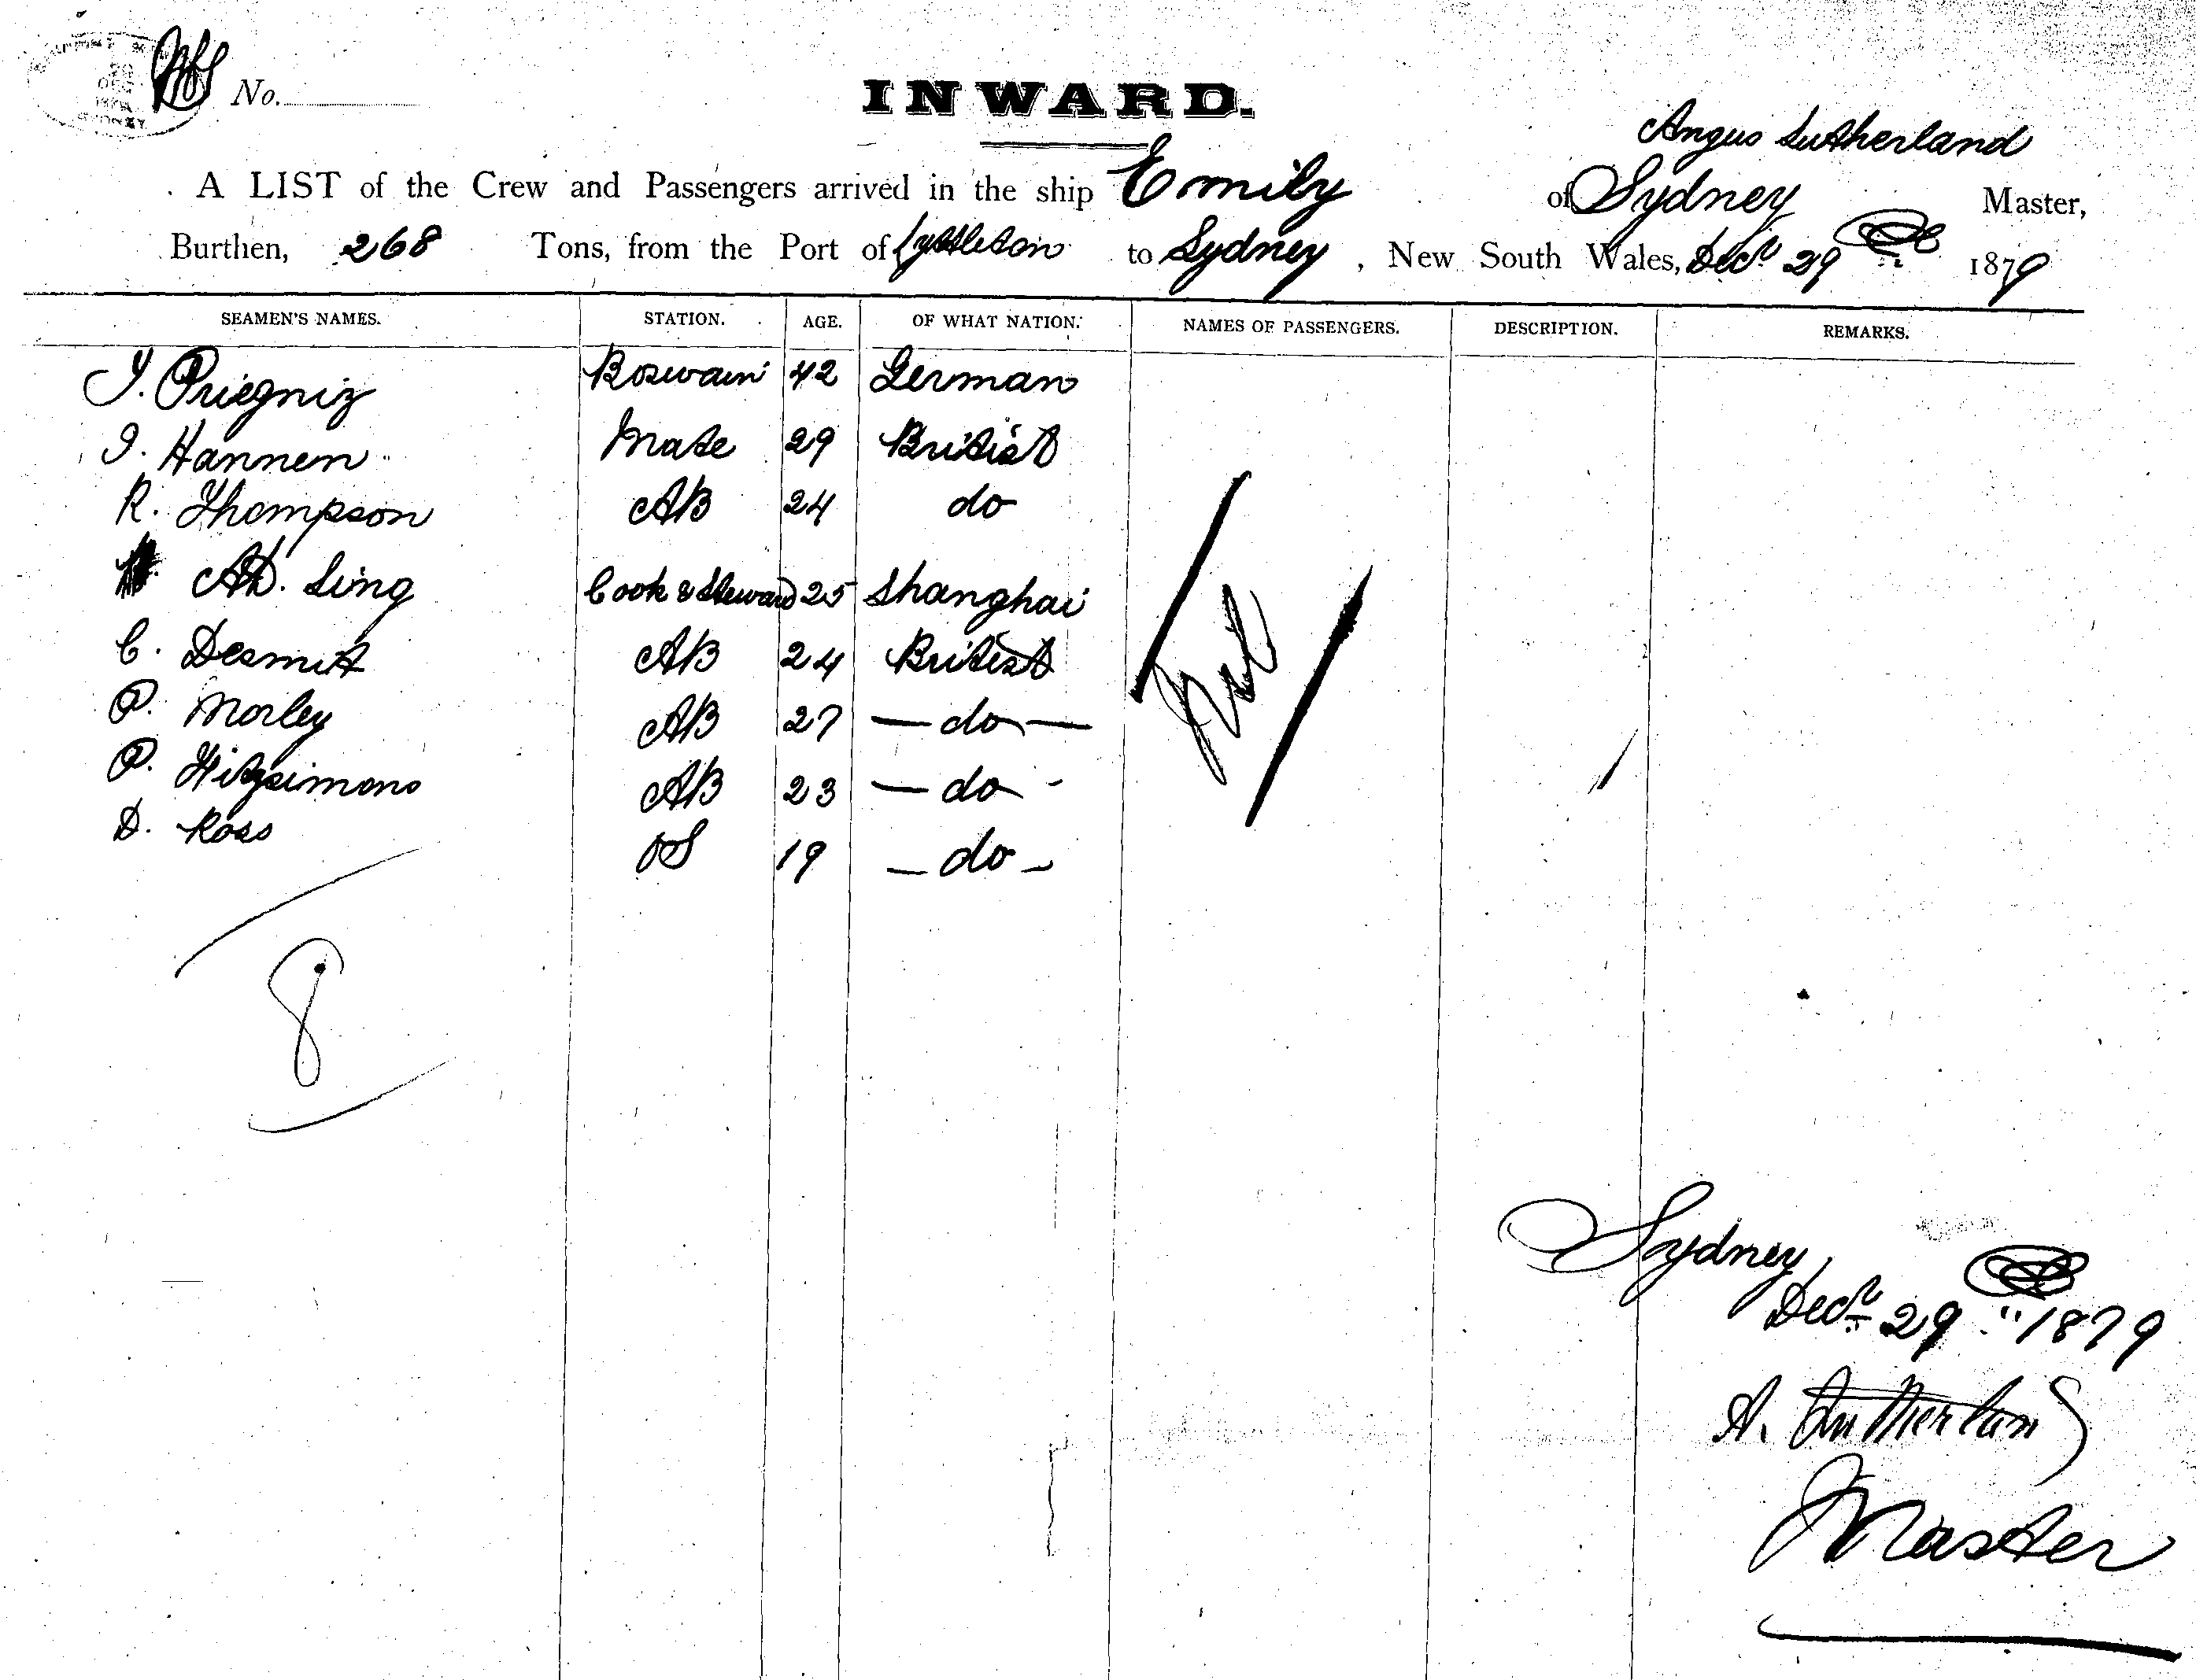 No.
INWARD.
Angus Sutherland
A LIST of the Crew and Passengers arrived in the ship Emily of Sydney Master,
Burthen, 268 Tons, from the Port of Lyttleton to Sydney, New South Wales, Decr 29 1879
SEAMEN'S NAMES. STATION. AGE. OF WHAT NATION. NAMES OF PASSENGERS. DESCRIPTION. REMARKS.
J. Priegniz Boswain 42 German
J. Hannen Mate 29 British
R. Thompson AB 24 do
Ah. Sing Cook & Steward 25 Shanghai
C. Desmit AB 24 British
P. Morley AB 27 — do —
P. Fitzsimons AB 23 — do -
D. Ross OS 19 — do —
Nil
8
Sydney
Decr 29 " 1879
A. Sutherland
Master